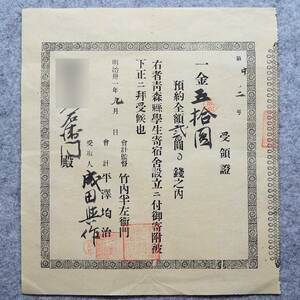 受領證
一金五拾圓
預約全額貳百圓 錢之内
右者靑森縣學生寄宿舍設立ニ付御寄附被
下正ニ拜受候也
明治卅一年九月 日
會計監督 竹内半左衞門
會計 平澤均治
受取人 成田
右衞門殿